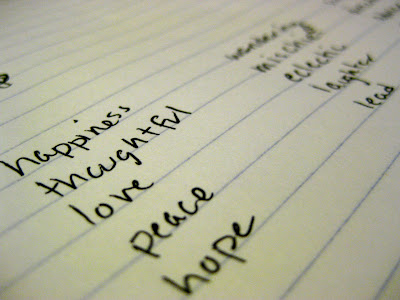 happiness
thoughtful
love
peace
hope
mischief
eclectic
laughter
lead